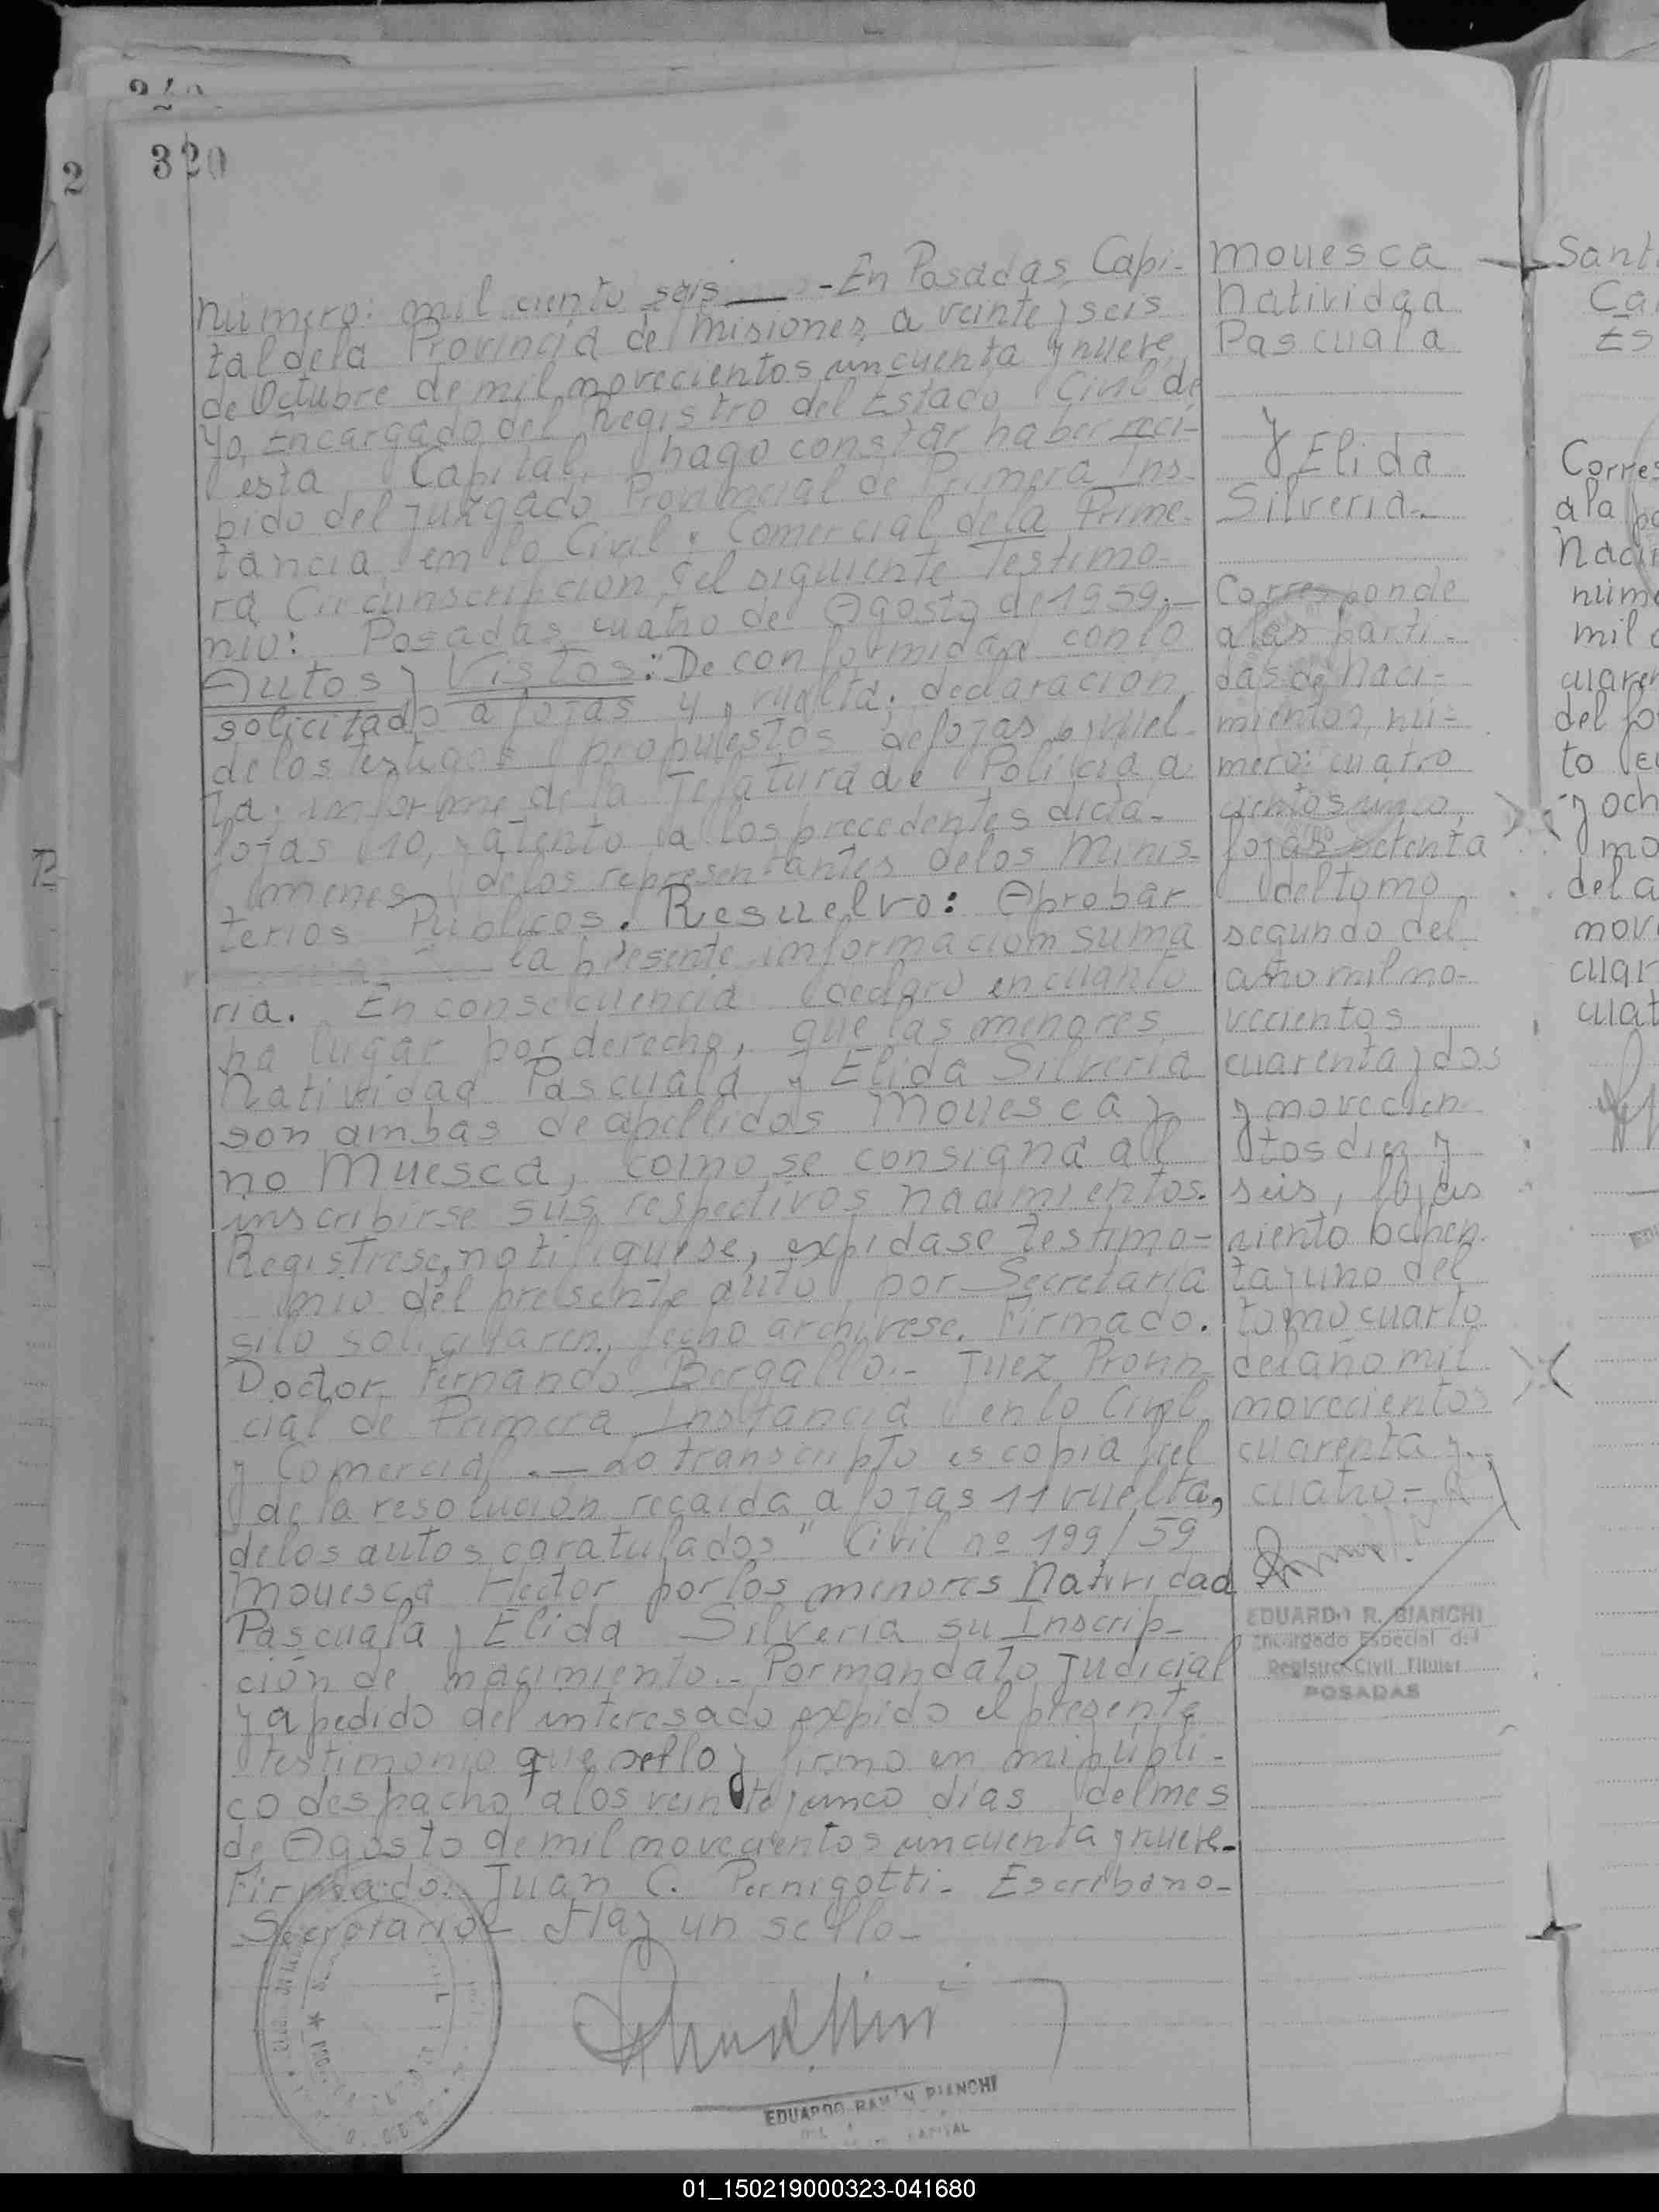 320
2
número: mil ciento seis — - En Posadas, Capi-
tal de la Provincia de Misiones, a veinte y seis
de Octubre de mil novecientos cincuenta y nueve,
Yo, Encargado del Registro del Estado Civil de
esta Capital, hago constar haber reci-
bido del Juzgado Provincial de Primera Ins-
tancia en lo Civil y Comercial de la Prime-
ra Circunscripción, el siguiente Testimo-
nio: Posadas, cuatro de Agosto de 1959.-
Autos y Vistos: "De conformidad con lo
solicitado a fojas 4 y vuelta; declaración
de los testigos propuestos de fojas y vuel-
ta; informe de la Jefatura de Policía a
fojas 10, y atento a los precedentes dictá-
menes de los representantes de los Minis-
terios Públicos. Resuelvo: Aprobar
la presente información suma
ria. En consecuencia declaro en cuanto
ha lugar por derecho, que las menores
Natividad Pascuala y Elida Silveria
son ambas de apellidos Mouesca y
no Muesca, como se consigna al
inscribirse sus respectivos nacimientos.
Registrese, notifiquese, expidase testimo-
nio del presente auto por Secretaría
si lo solicitaren, fecho archívese. Firmado.
Doctor Fernando Bergallo.- Juez Provin
cial de Primera Instancia en lo Civil
y Comercial.— Lo transcripto es copia fiel
de la resolución recaída a fojas 11 vuelta,
de los autos caratulados "Civil nº 199/59
Mouesca Hector por los menores Natividad
Pascuala y Elida Silveria su Inscrip-
ción de nacimiento.- Por mandato Judicial
y a pedido del interesado expido el presente
testimonio que sello y firmo en mi públi-
co despacho a los veinte y cinco días del mes
de Agosto de mil novecientos cincuenta y nueve.-
Firmado. Juan C. Pernigotti - Escribano-
Secretario- Hay un sello-
EDUARDO RAMÓN BIANCHI
CAPITAL
Mouesca
Natividad
Pascuala
y Elida
Silveria.-
Corresponde
a las parti-
das de naci-
mientos, nú-
mero: cuatro
cientos cinco,
fojas setenta
del tomo
segundo del
año mil no-
vecientos
cuarenta y dos
y novecien
tos diez y
seis, fojas
ciento ochen
ta y uno del
tomo cuarto
del año mil
novecientos
cuarenta y
cuatro.-
EDUARDO R. BIANCHI
Encargado Especial del
Registro Civil Titular
POSADAS
Corres
a la
Naci
núme
mil
cuaren
del fo
to
y och
mo
del a
nov
cuar
cuat
01_150219000323-041680